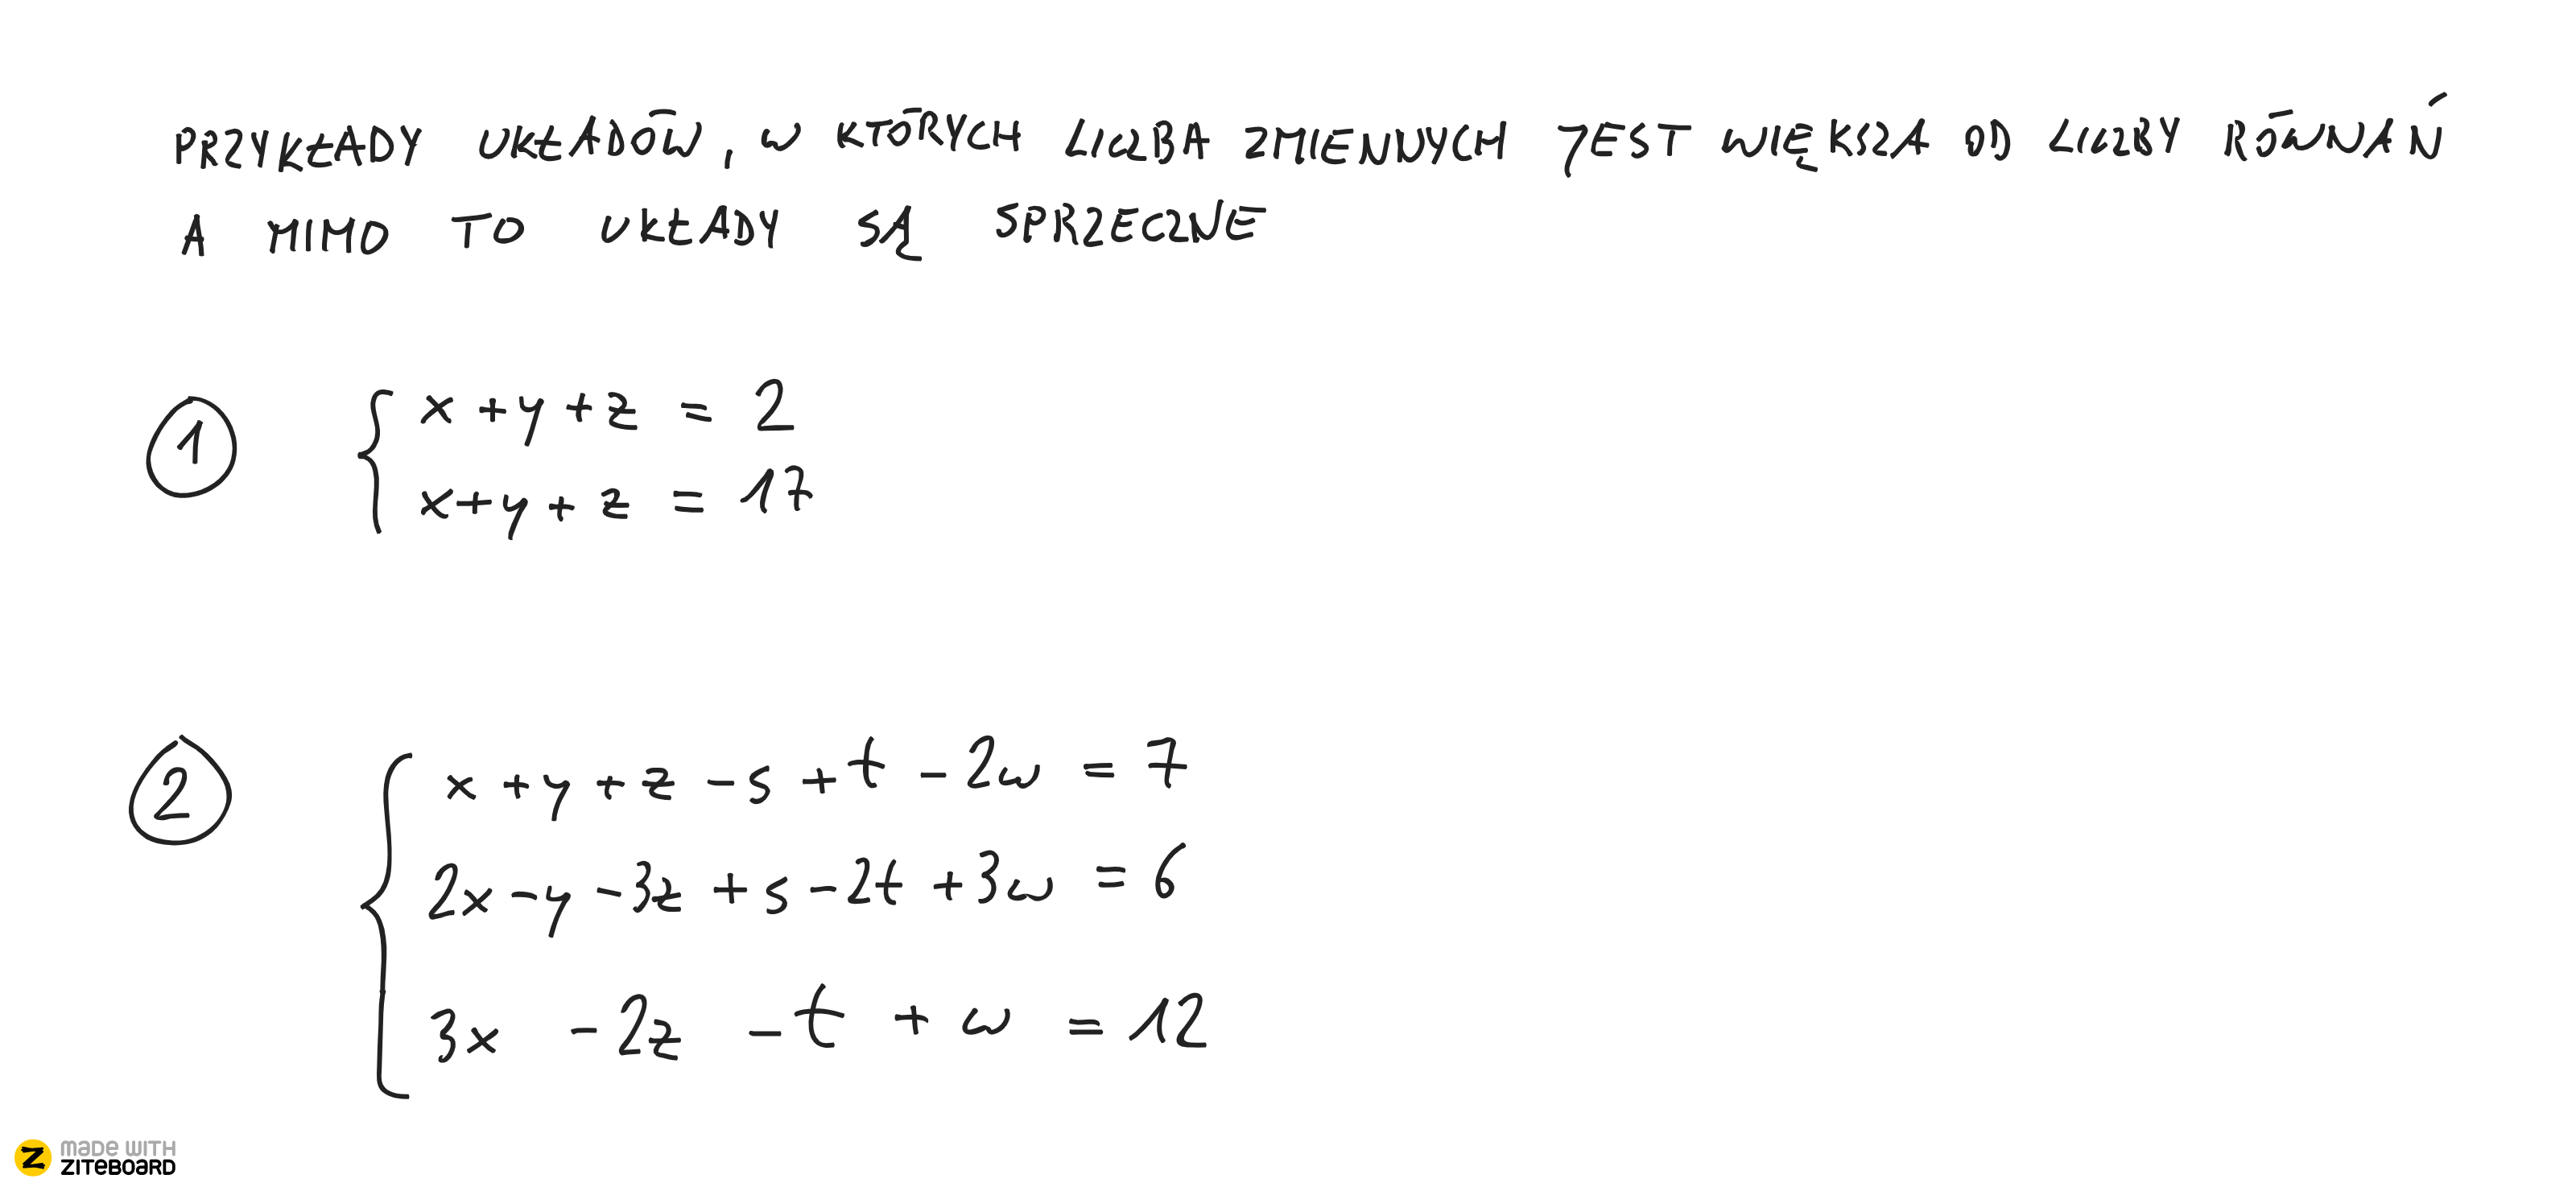 PRZYKŁADY UKŁADÓW, W KTÓRYCH LICZBA ZMIENNYCH JEST WIĘKSZA OD LICZBY RÓWNAŃ
A MIMO TO UKŁADY SĄ SPRZECZNE
1
x + y + z = 2
x + y + z = 17
2
x + y + z - s + t - 2w = 7
2x - y - 3z + s - 2t + 3w = 6
3x - 2z - t + w = 12
MADE WITH
ZITEBOARD